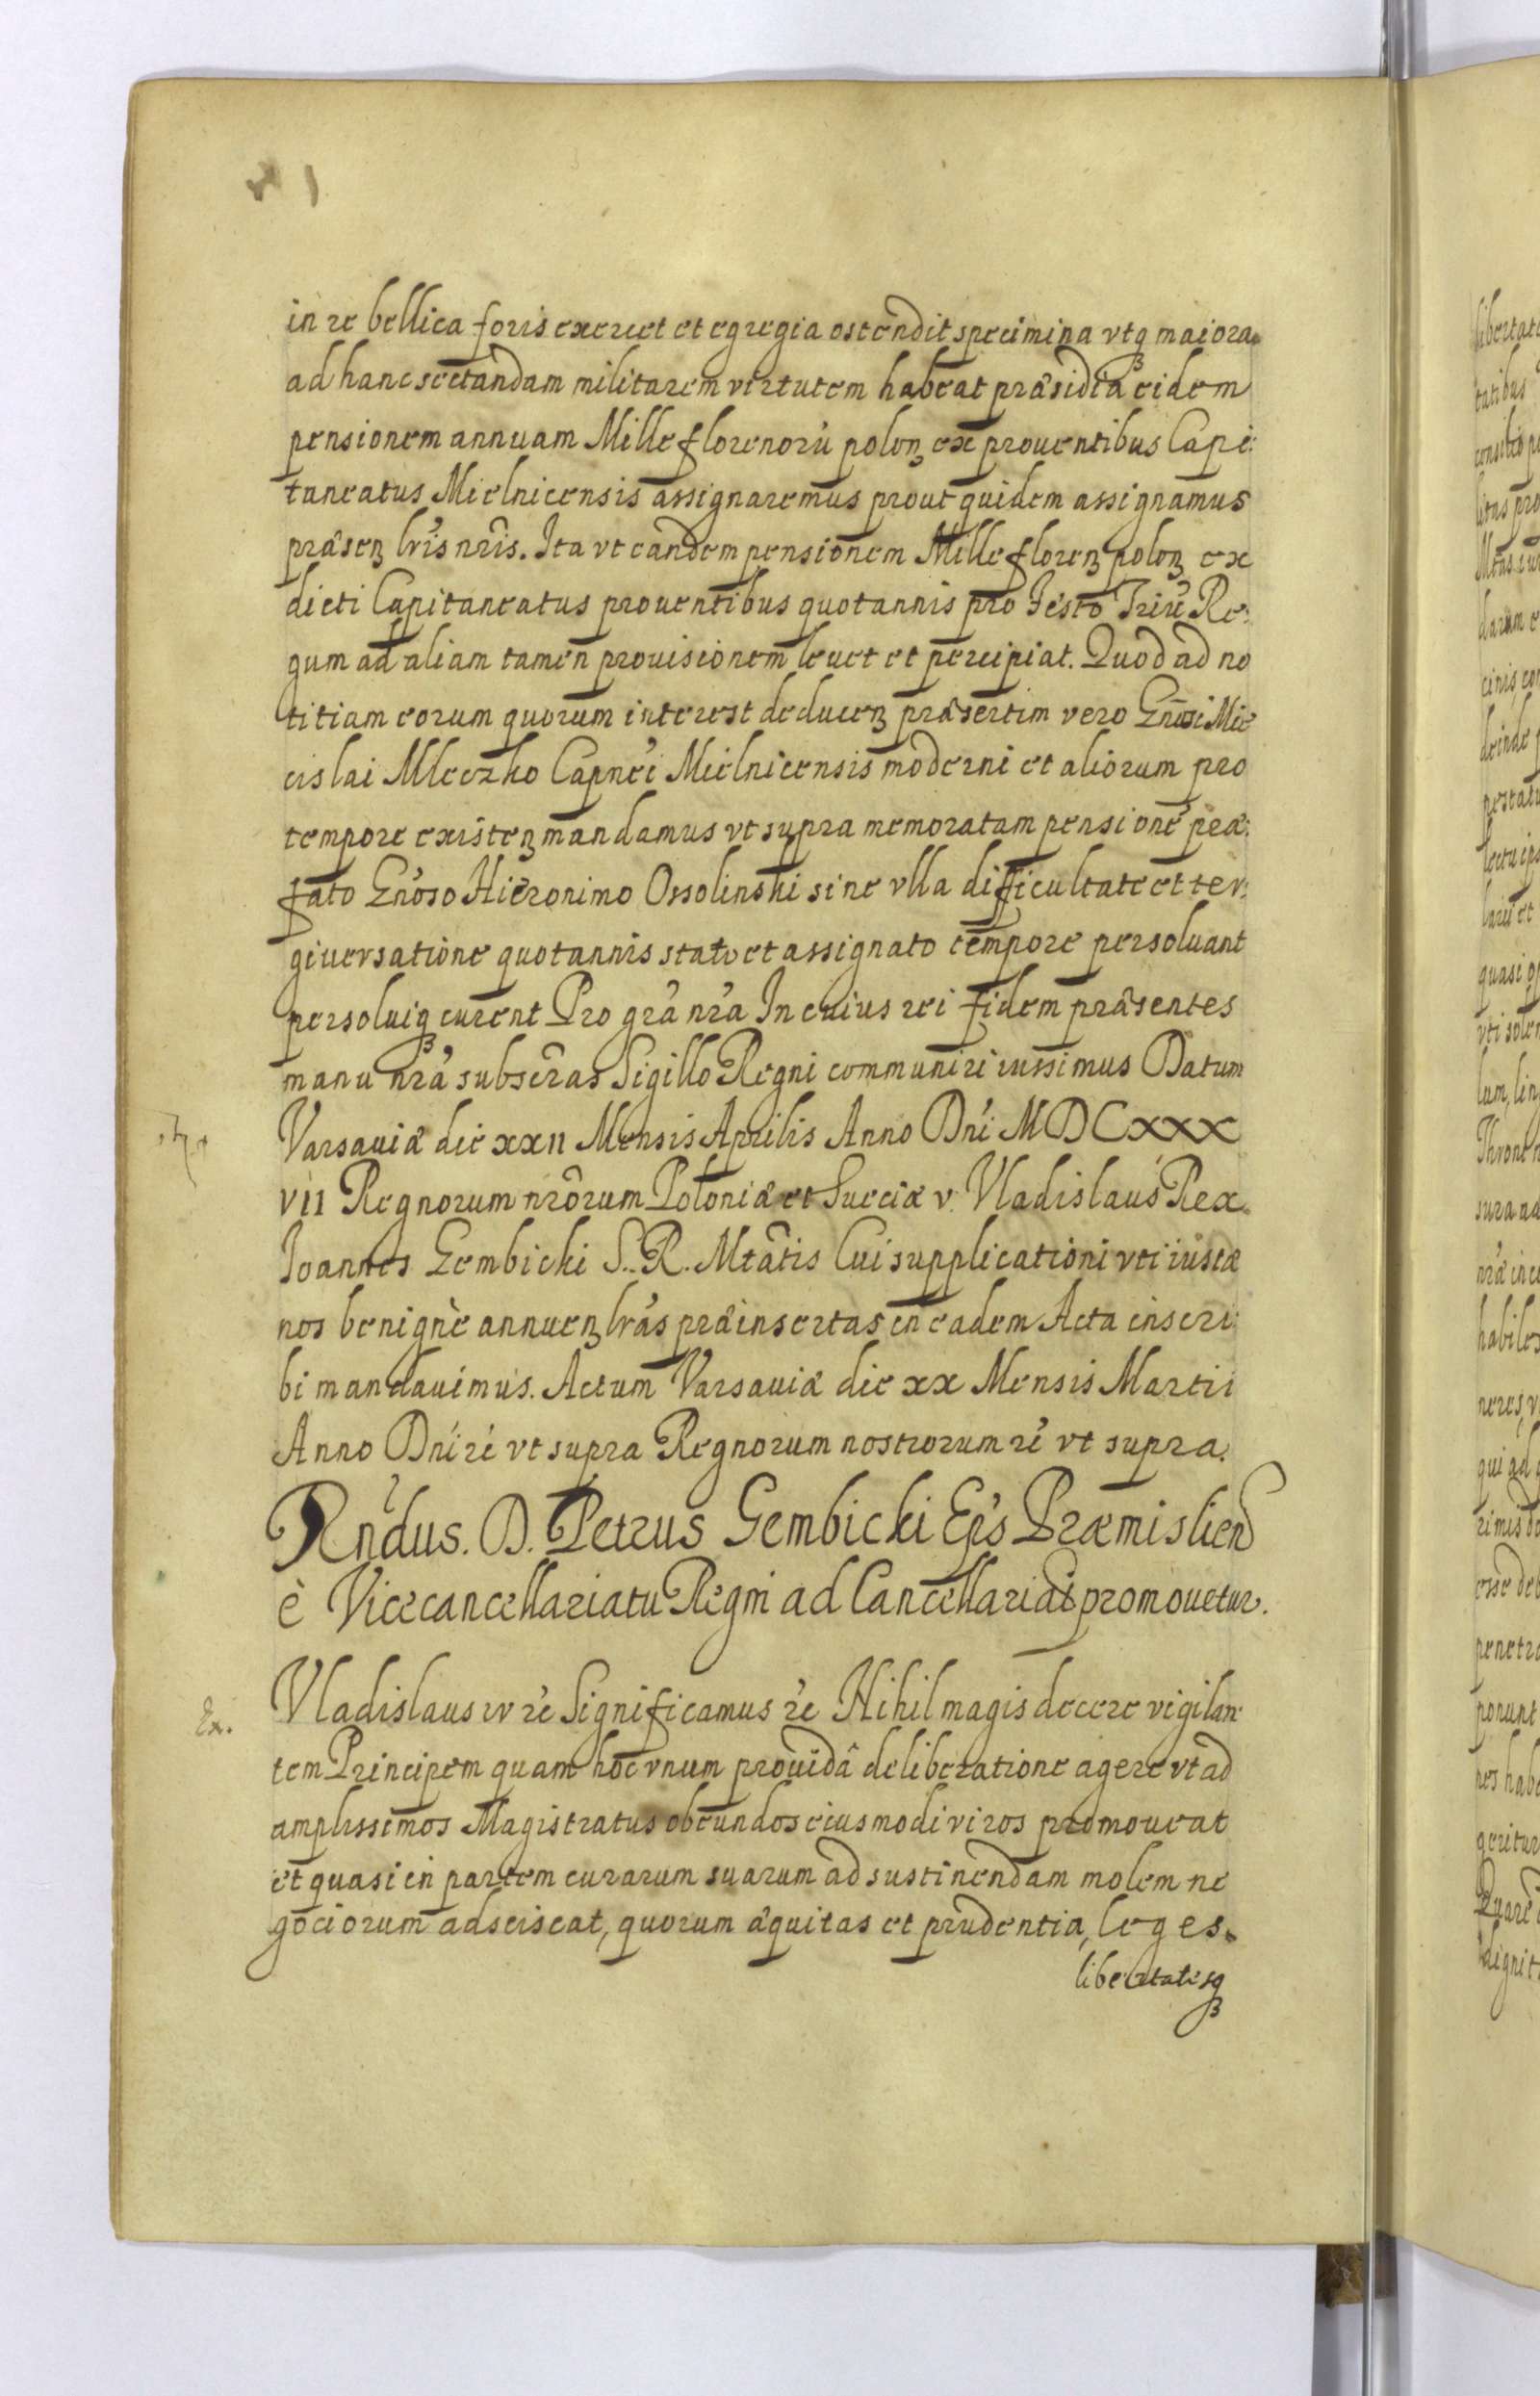 in re bellica foris exercet et egregia ostendit specimina vtq maiora
ad hanc sectandam militarem virtutem habeat præsidia eidem
pensionem annuam Mille florenorū polonȝ ex prouentibus Capi:
taneatus Mielnicensis assignaremus prout quidem assignamus
præsenȝ lrīs nrīs. Ita vt eandem pensionem Mille florenȝ polonȝ ex
dicti Capitaneatus prouentibus quotannis pro Festo Triū Re:
gum ad aliam tamen prouisionem leuet et percipiat. Quod ad no
titiam eorum quorum interest deducenȝ præsertim vero Gnōsi Mie
cislai Mleczko Capneī Mielnicensis moderni et aliorum pro
tempore existenȝ mandamus vt supra memoratam pensionē præ:
fato Gnōso Hieronimo Ossolinski sine vlla difficultate et ter:
giuersatione quotannis stato et assignato tempore persoluant
persoluiq curent Pro grā nrā In cuius rei fidem præsentes
manu nrā subscrās Sigillo Regni communiri iussimus Datum
Varsauiæ die xxii Mensis Aprilis Anno Dnī MDCxxx
vii Regnorum nrōrum Poloniæ et Sueciæ v. Vladislaus Rex
Ioannes Gembicki S. R. Mtātis Cui supplicationi vti iustæ
nos benignè annuenȝ lrās præinsertas in eadem Acta inscri:
bi mandauimus. Actum Varsauiæ die xx Mensis Martii
Anno Dnī rē vt supra Regnorum nostrorum rē vt supra.
Rndūs. D. Petrus Gembicki Epūs Præmislien
è Vicecancellariatu Regni ad Cancellariat promouetur.
Ex. Vladislaus iv rē Significamus rē Nihil magis decere vigilan
tem Principem quam hoc vnum prouidâ deliberatione agere vt ad
amplissimos Magistratus obeundos eiusmodi viros promoueat
et quasi in partem curarum suarum ad sustinendam molem ne
gociorum adsciscat, quorum æquitas et prudentia, leges
libertatesq